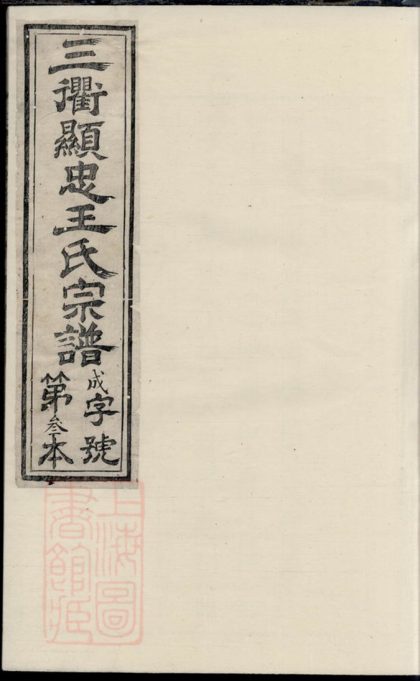 三衢顯忠王氏宗譜
成字號
第叁本
上海圖
書館藏